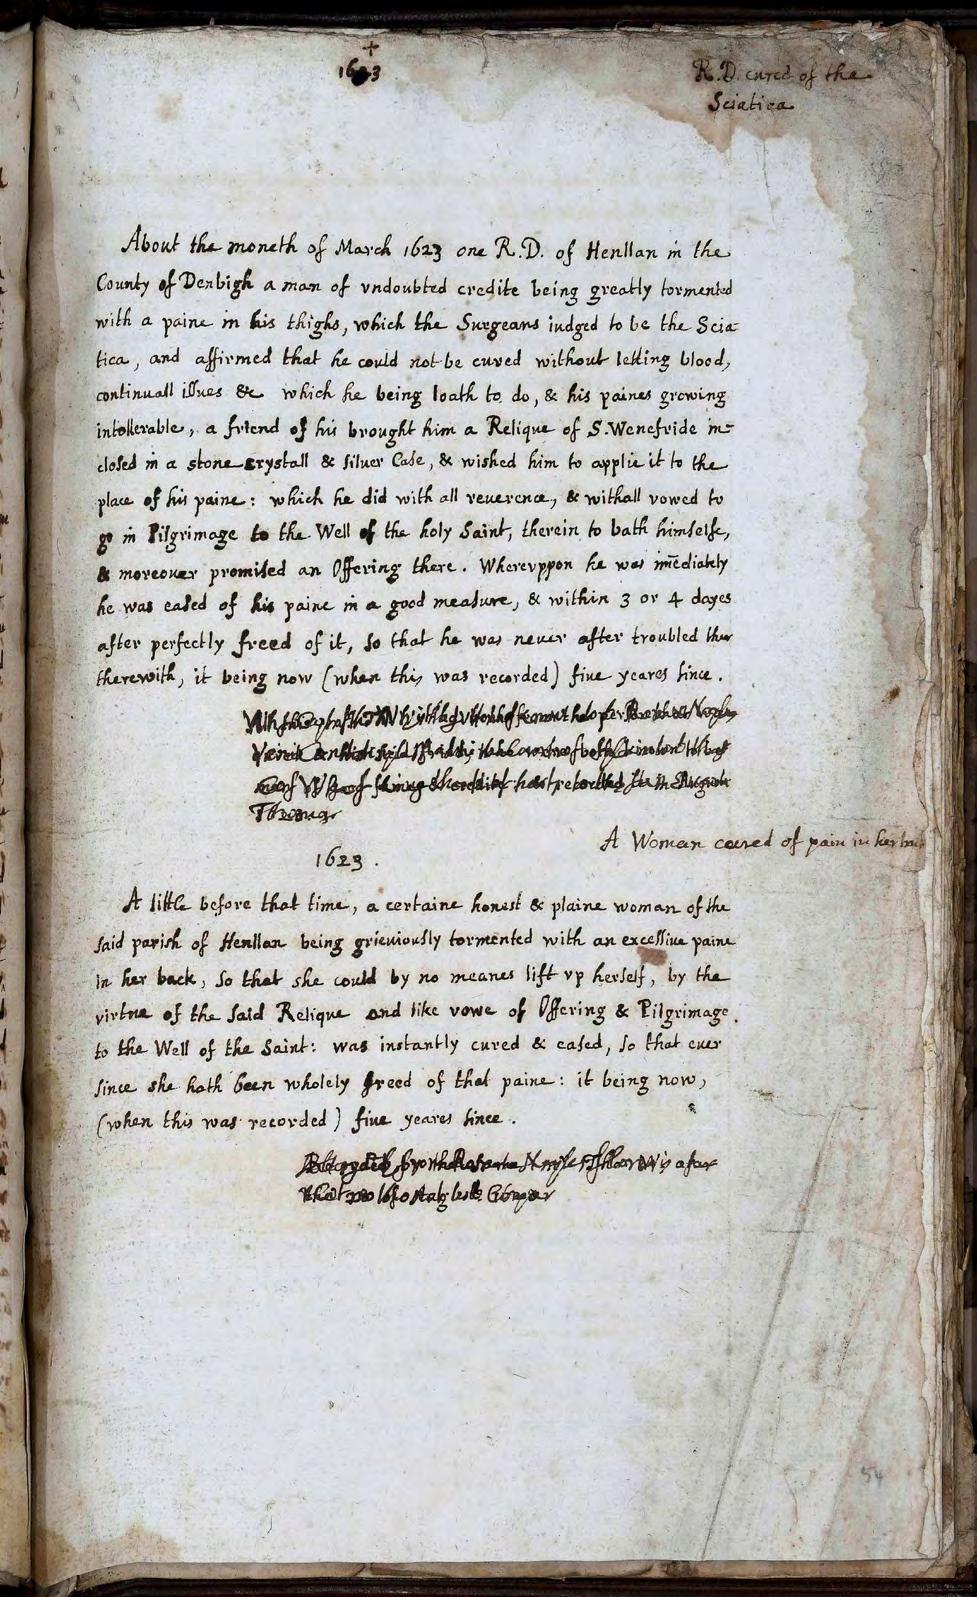 1623
R.D. cured of the
Sciatica
About the moneth of March 1623 one R.D. of Henllan in the
County of Denbigh a man of vndoubted credite being greatly tormented
with a paine in his thighs, which the Surgeans iudged to be the Scia-
tica, and affirmed that he could not be cured without letting blood,
continuall issues &c which he being loath to do, & his paines growing
intollerable, a friend of his brought him a Relique of S. Wenefride in-
closed in a stone crystall & siluer Case, & wished him to applie it to the
place of his paine: which he did with all reuerence, & withall vowed to
go in Pilgrimage to the Well of the holy Saint, therein to bath himselfe,
& moreouer promised an Offering there. Wherevppon he was im̄ediately
he was eased of his paine in a good measure, & within 3 or 4 dayes
after perfectly freed of it, so that he was neuer after troubled
therewith, it being now (when this was recorded) fiue yeares since.
A Woman cured of pain in her
1623.
A little before that time, a certaine honest & plaine woman of the
said parish of Henllan being grieuiously tormented with an excessiue paine
in her back, so that she could by no meanes lift vp herself, by the
virtue of the said Relique and like vowe of Offering & Pilgrimage
to the Well of the Saint: was instantly cured & eased, so that euer
since she hath been wholely freed of that paine: it being now,
(when this was recorded) fiue yeares since.
54